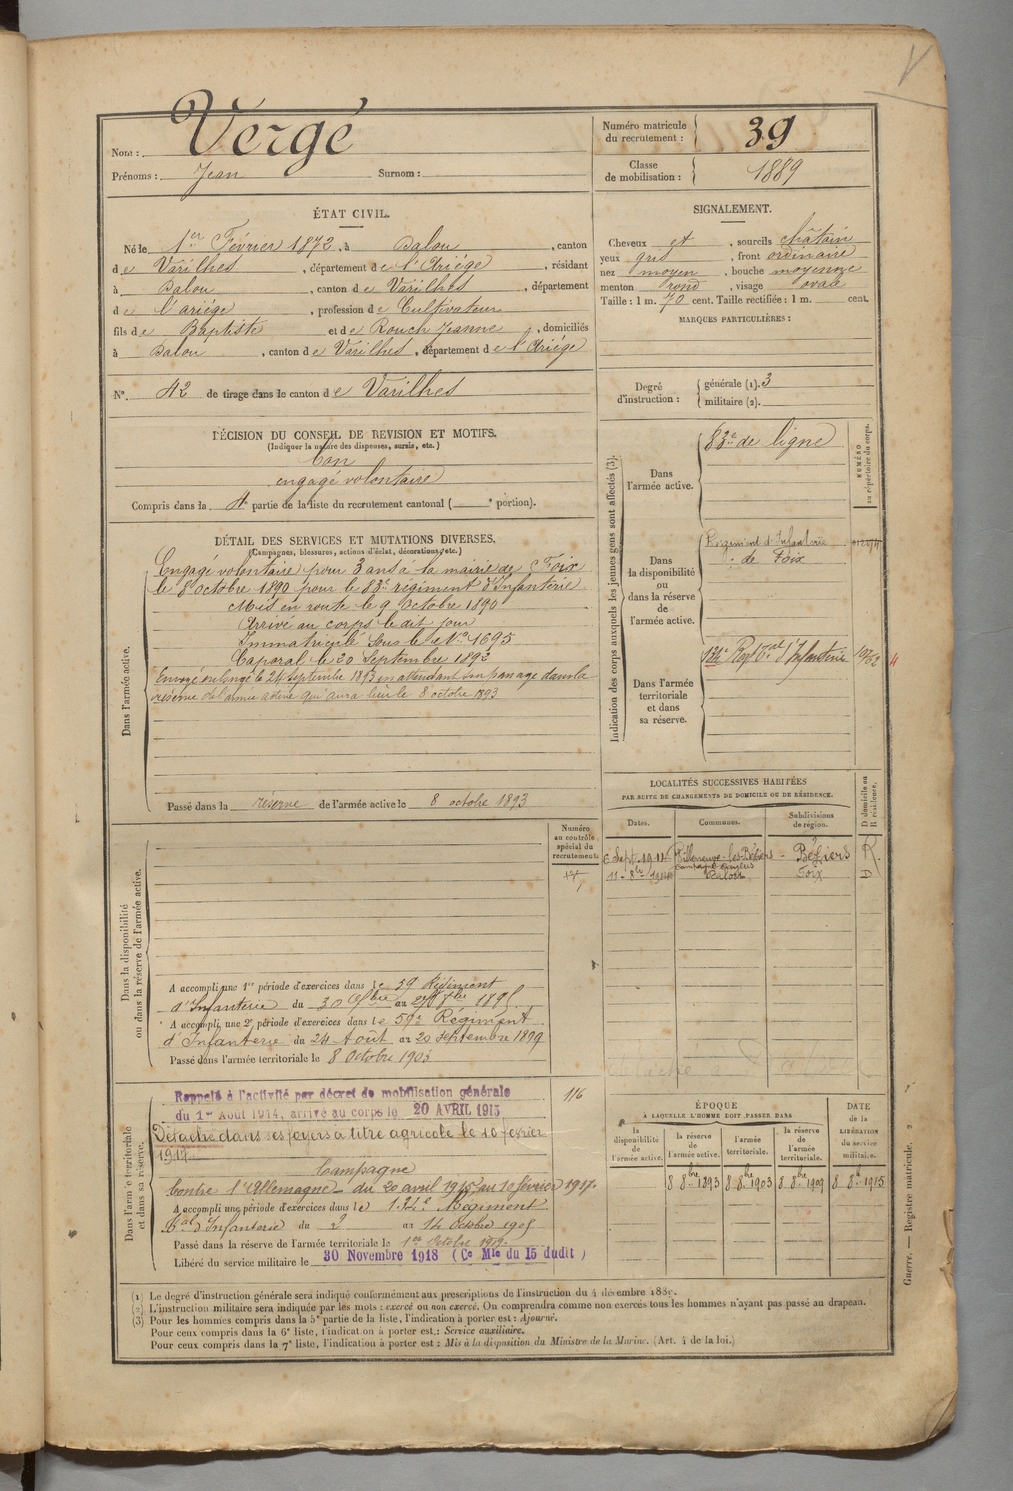 V
Nom : Vergé
Prénoms : Jean Surnom :
Numéro matricule du recrutement : 39
Classe de mobilisation : 1889
ÉTAT CIVIL.
Né le 1er Février 1872, à Dalou, canton
de Varilhes, département de l'Ariége, résidant
à Dalou, canton de Varilhes, département
de l'ariége, profession de Cultivateur
fils de Baptiste et de Rouch Jeanne, domiciliés
à Dalou, canton de Varilhes, département de l'Ariége
N°. 42 de tirage dans le canton de Varilhes
SIGNALEMENT.
Cheveux et, sourcils châtain
yeux gris, front ordinaire
nez moyen, bouche moyenne
menton rond, visage ovale
Taille : 1 m. 70 cent. Taille rectifiée : 1 m. cent.
MARQUES PARTICULIÈRES :
Degré d'instruction : générale (1). 3
militaire (2).
DÉCISION DU CONSEIL DE REVISION ET MOTIFS.
(Indiquer la nature des dispenses, sursis, etc.)
Bon
engagé volontaire
Compris dans la 4e partie de la liste du recrutement cantonal ( e portion).
DÉTAIL DES SERVICES ET MUTATIONS DIVERSES.
(Campagnes, blessures, actions d'éclat, décorations, etc.)
Dans l'armée active.
Engagé volontaire pour 3 ans à la mairie de Foix
le 8 octobre 1890 pour le 83e régiment d'Infanterie
Mis en route le 9 Octobre 1890
Arrivé au corps le dit jour
Immatriculé sous le No 1695
Caporal le 20 Septembre 1892
Envoyé en congé le 24 septembre 1893 en attendant son passage dans la
réserve de l'armée active qui aura lieu le 8 octobre 1893
Passé dans la réserve de l'armée active le 8 octobre 1893
Indication des corps auxquels les jeunes gens sont affectés (3).
NUMÉRO au répertoire du corps.
Dans l'armée active.
83e de ligne
Dans la disponibilité ou dans la réserve de l'armée active.
Régiment d'Infanterie
de Foix
Dans l'armée territoriale et dans sa réserve.
134e Regt Tal d'Infanterie
LOCALITÉS SUCCESSIVES HABITÉES
PAR SUITE DE CHANGEMENTS DE DOMICILE OU DE RÉSIDENCE.
Dates. Communes. Subdivisions de région. D domicile ou R résidence.
Villeneuve-les-Béziers Béziers R.
Dalou Foix D
Dans la disponibilité ou dans la réserve de l'armée active.
Numéro au contrôle spécial du recrutement.
A accompli une 1re période d'exercices dans le 59 Régiment
d'Infanterie du 30 7bre au 8bre 1895
A accompli une 2e période d'exercices dans le 59e Régiment
d'Infanterie du 24 Août au 20 septembre 1899
Passé dans l'armée territoriale le 8 Octobre 1903
Dans l'armée territoriale et dans sa réserve.
Rappelé à l'activité par décret de mobilisation générale 116
du 1er Août 1914, arrivé au corps le 20 AVRIL 1915
Détaché dans ses foyers à titre agricole le 10 février
1917
Campagne
Contre l'Allemagne du 20 avril 1915 au 10 février 1917.
A accompli une période d'exercices dans le 134e Régiment
d'Infanterie du 2 au 14 Octobre 1905
Passé dans la réserve de l'armée territoriale le 1er Octobre 1909.
Libéré du service militaire le 30 Novembre 1918 (Ce Mle du 15 dudit)
ÉPOQUE
À LAQUELLE L'HOMME DOIT PASSER DANS
la disponibilité de l'armée active. la réserve de l'armée active. l'armée territoriale. la réserve de l'armée territoriale.
DATE de la LIBÉRATION du service militaire.
8 8bre 1893 8 8bre 1903 8 8bre 1909 8 8bre 1915
Guerre. — Registre matricule. 2
(1) Le degré d'instruction générale sera indiqué conformément aux prescriptions de l'instruction du 4 décembre 1889.
(2) L'instruction militaire sera indiquée par les mots : exercé ou non exercé. On comprendra comme non exercés tous les hommes n'ayant pas passé au drapeau.
(3) Pour les hommes compris dans la 5e partie de la liste, l'indication à porter est : Ajourné.
Pour ceux compris dans la 6e liste, l'indication à porter est : Service auxiliaire.
Pour ceux compris dans la 7e liste, l'indication à porter est : Mis à la disposition du Ministre de la Marine. (Art. 4 de la loi.)